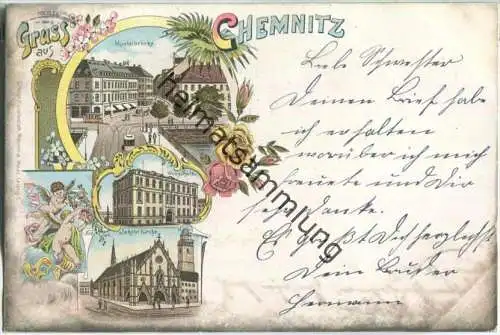 Gruss
aus
CHEMNITZ
Nicolaibrücke.
Jakobi Kirche
heimatsammlung.de
Liebe Schwester
Deinen Brief habe
ich erhalten
worüber ich mich
freuete und Dir
sehr danke.
Es grüßt Dich herzlichst
Dein Bruder
Hermann